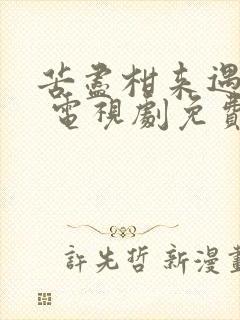 苦盡柑來遇
電視劇免費
許先哲 新漫畫